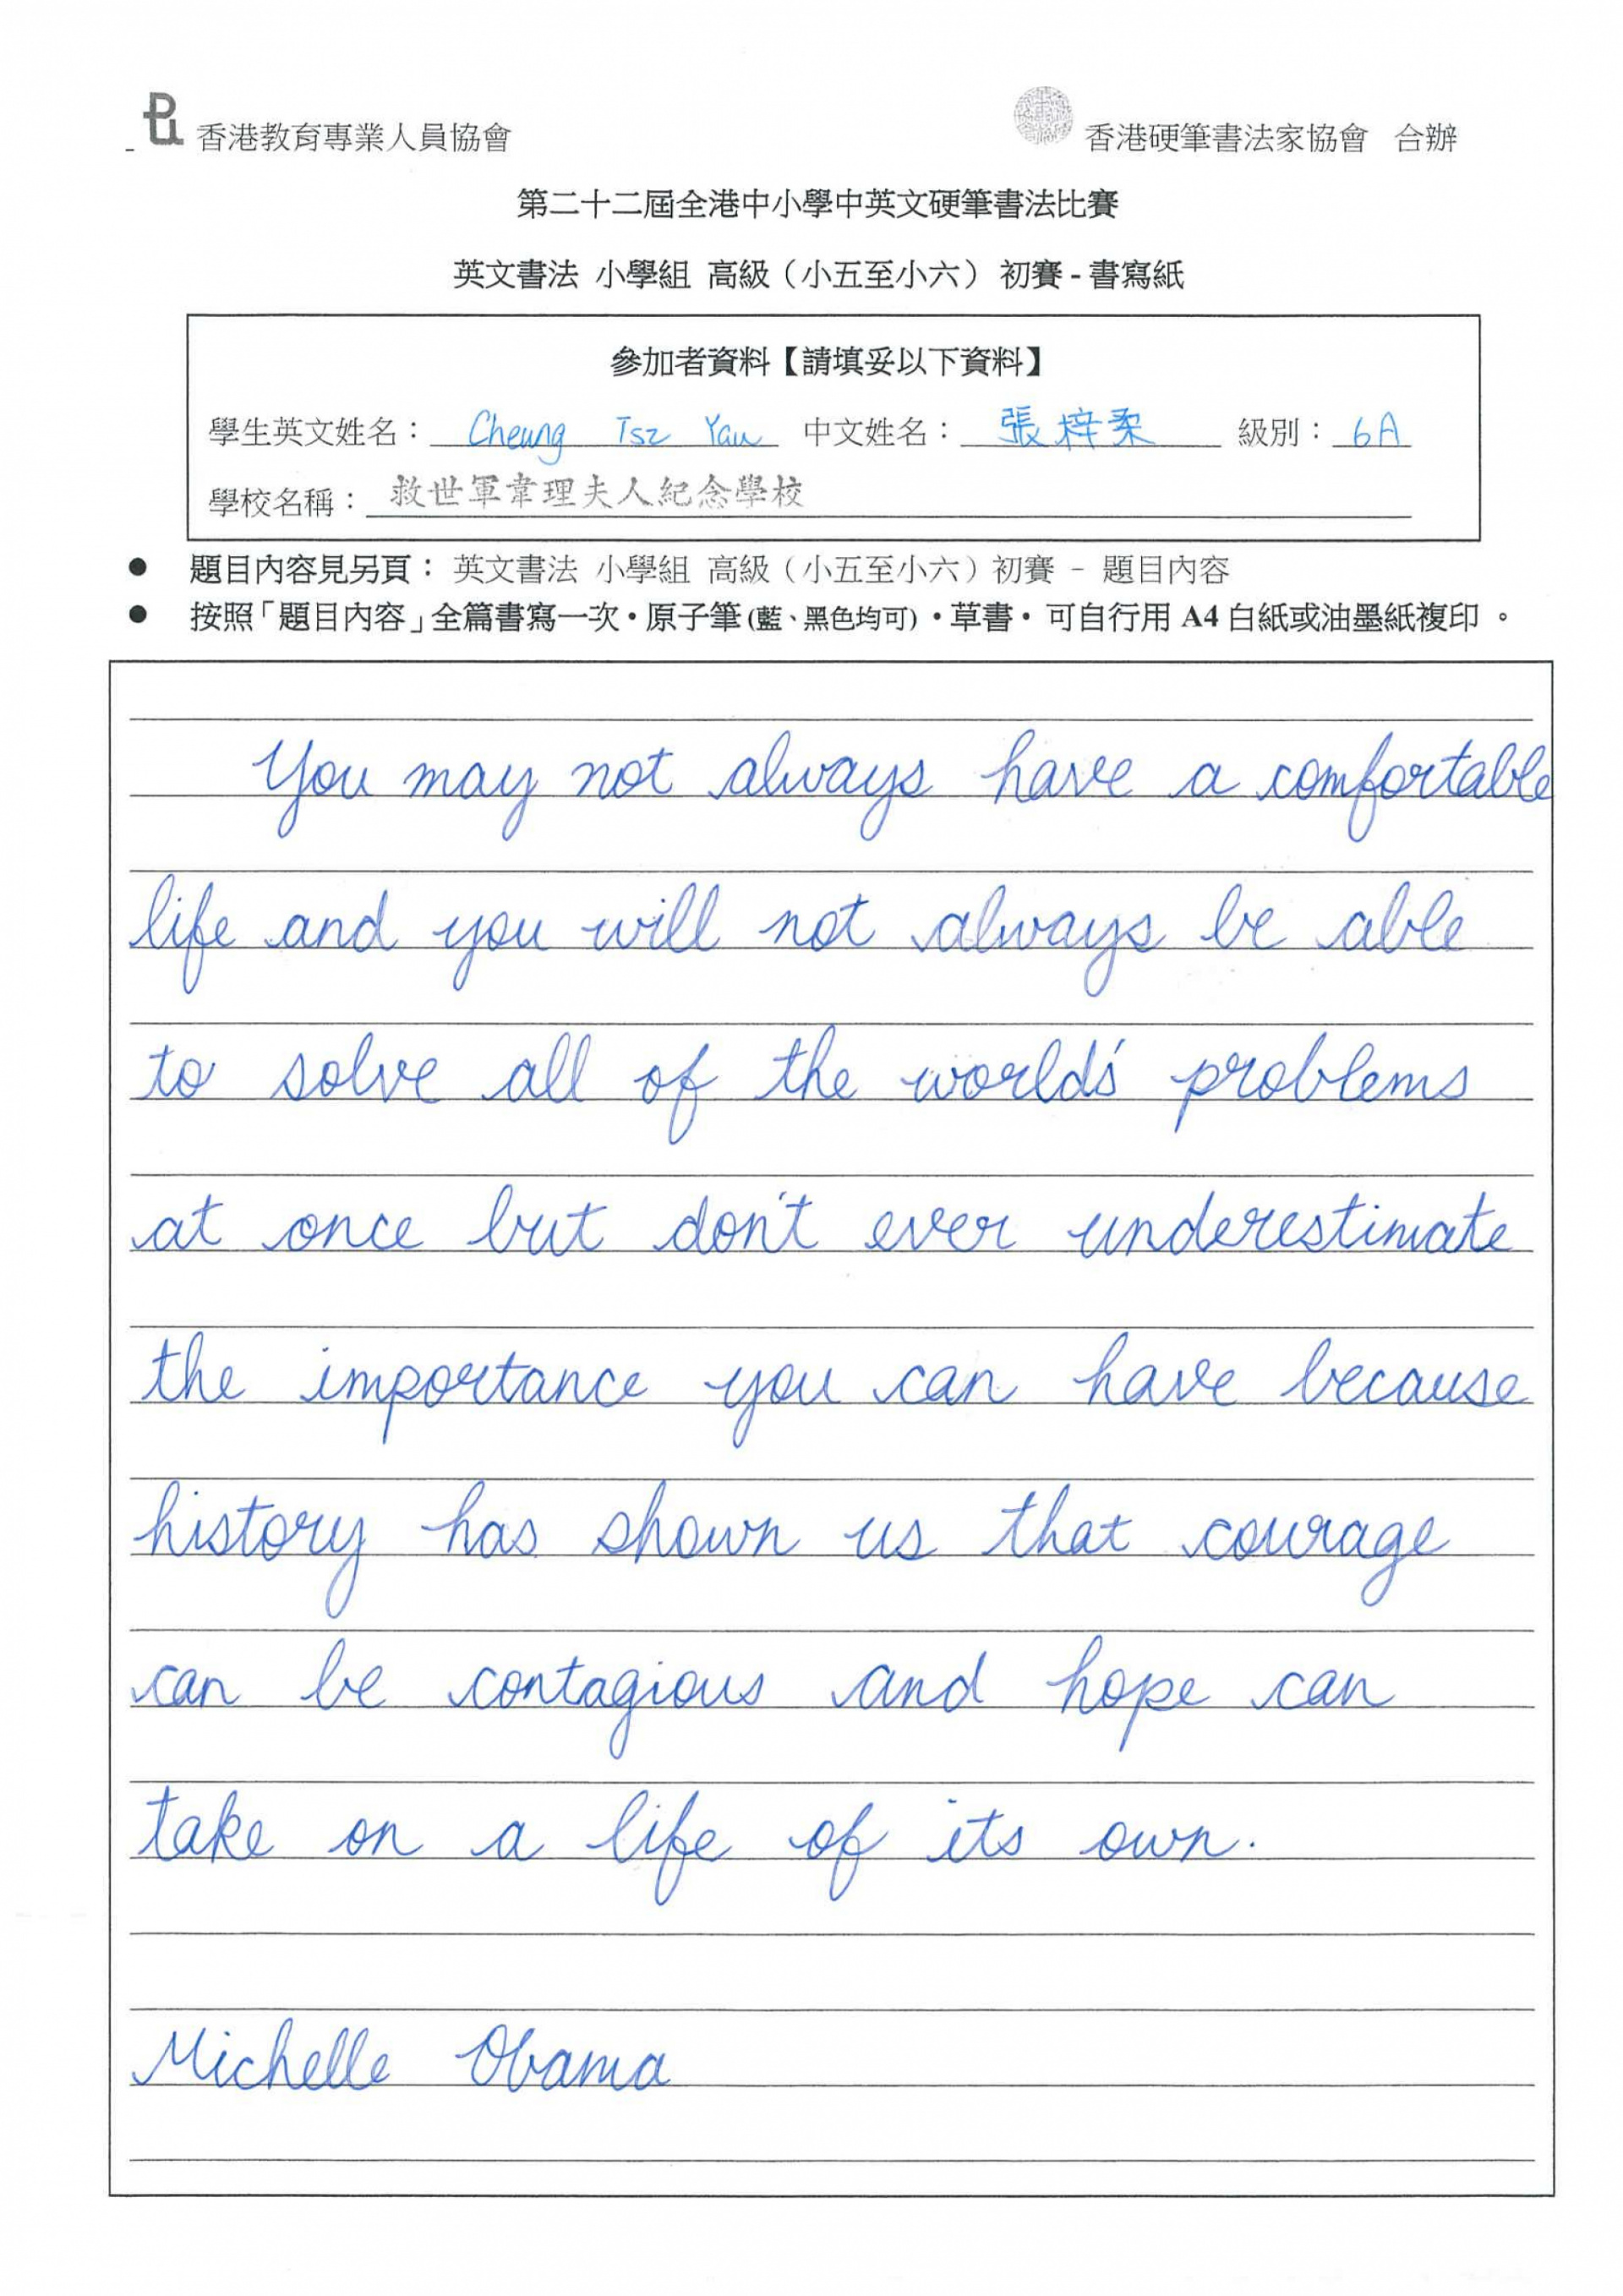 香港教育專業人員協會
香港硬筆書法家協會 合辦
第二十二屆全港中小學中英文硬筆書法比賽
英文書法 小學組 高級（小五至小六） 初賽 - 書寫紙
參加者資料【請填妥以下資料】
學生英文姓名： Cheung Tsz Yau 中文姓名： 張梓柔 級別： 6A
學校名稱： 救世軍韋理夫人紀念學校
● 題目內容見另頁： 英文書法 小學組 高級（小五至小六）初賽 - 題目內容
● 按照「題目內容」全篇書寫一次・原子筆 (藍、黑色均可)・草書・ 可自行用 A4 白紙或油墨紙複印 。
You may not always have a comfortable
life and you will not always be able
to solve all of the world's problems
at once but don't ever underestimate
the importance you can have because
history has shown us that courage
can be contagious and hope can
take on a life of its own.
Michelle Obama